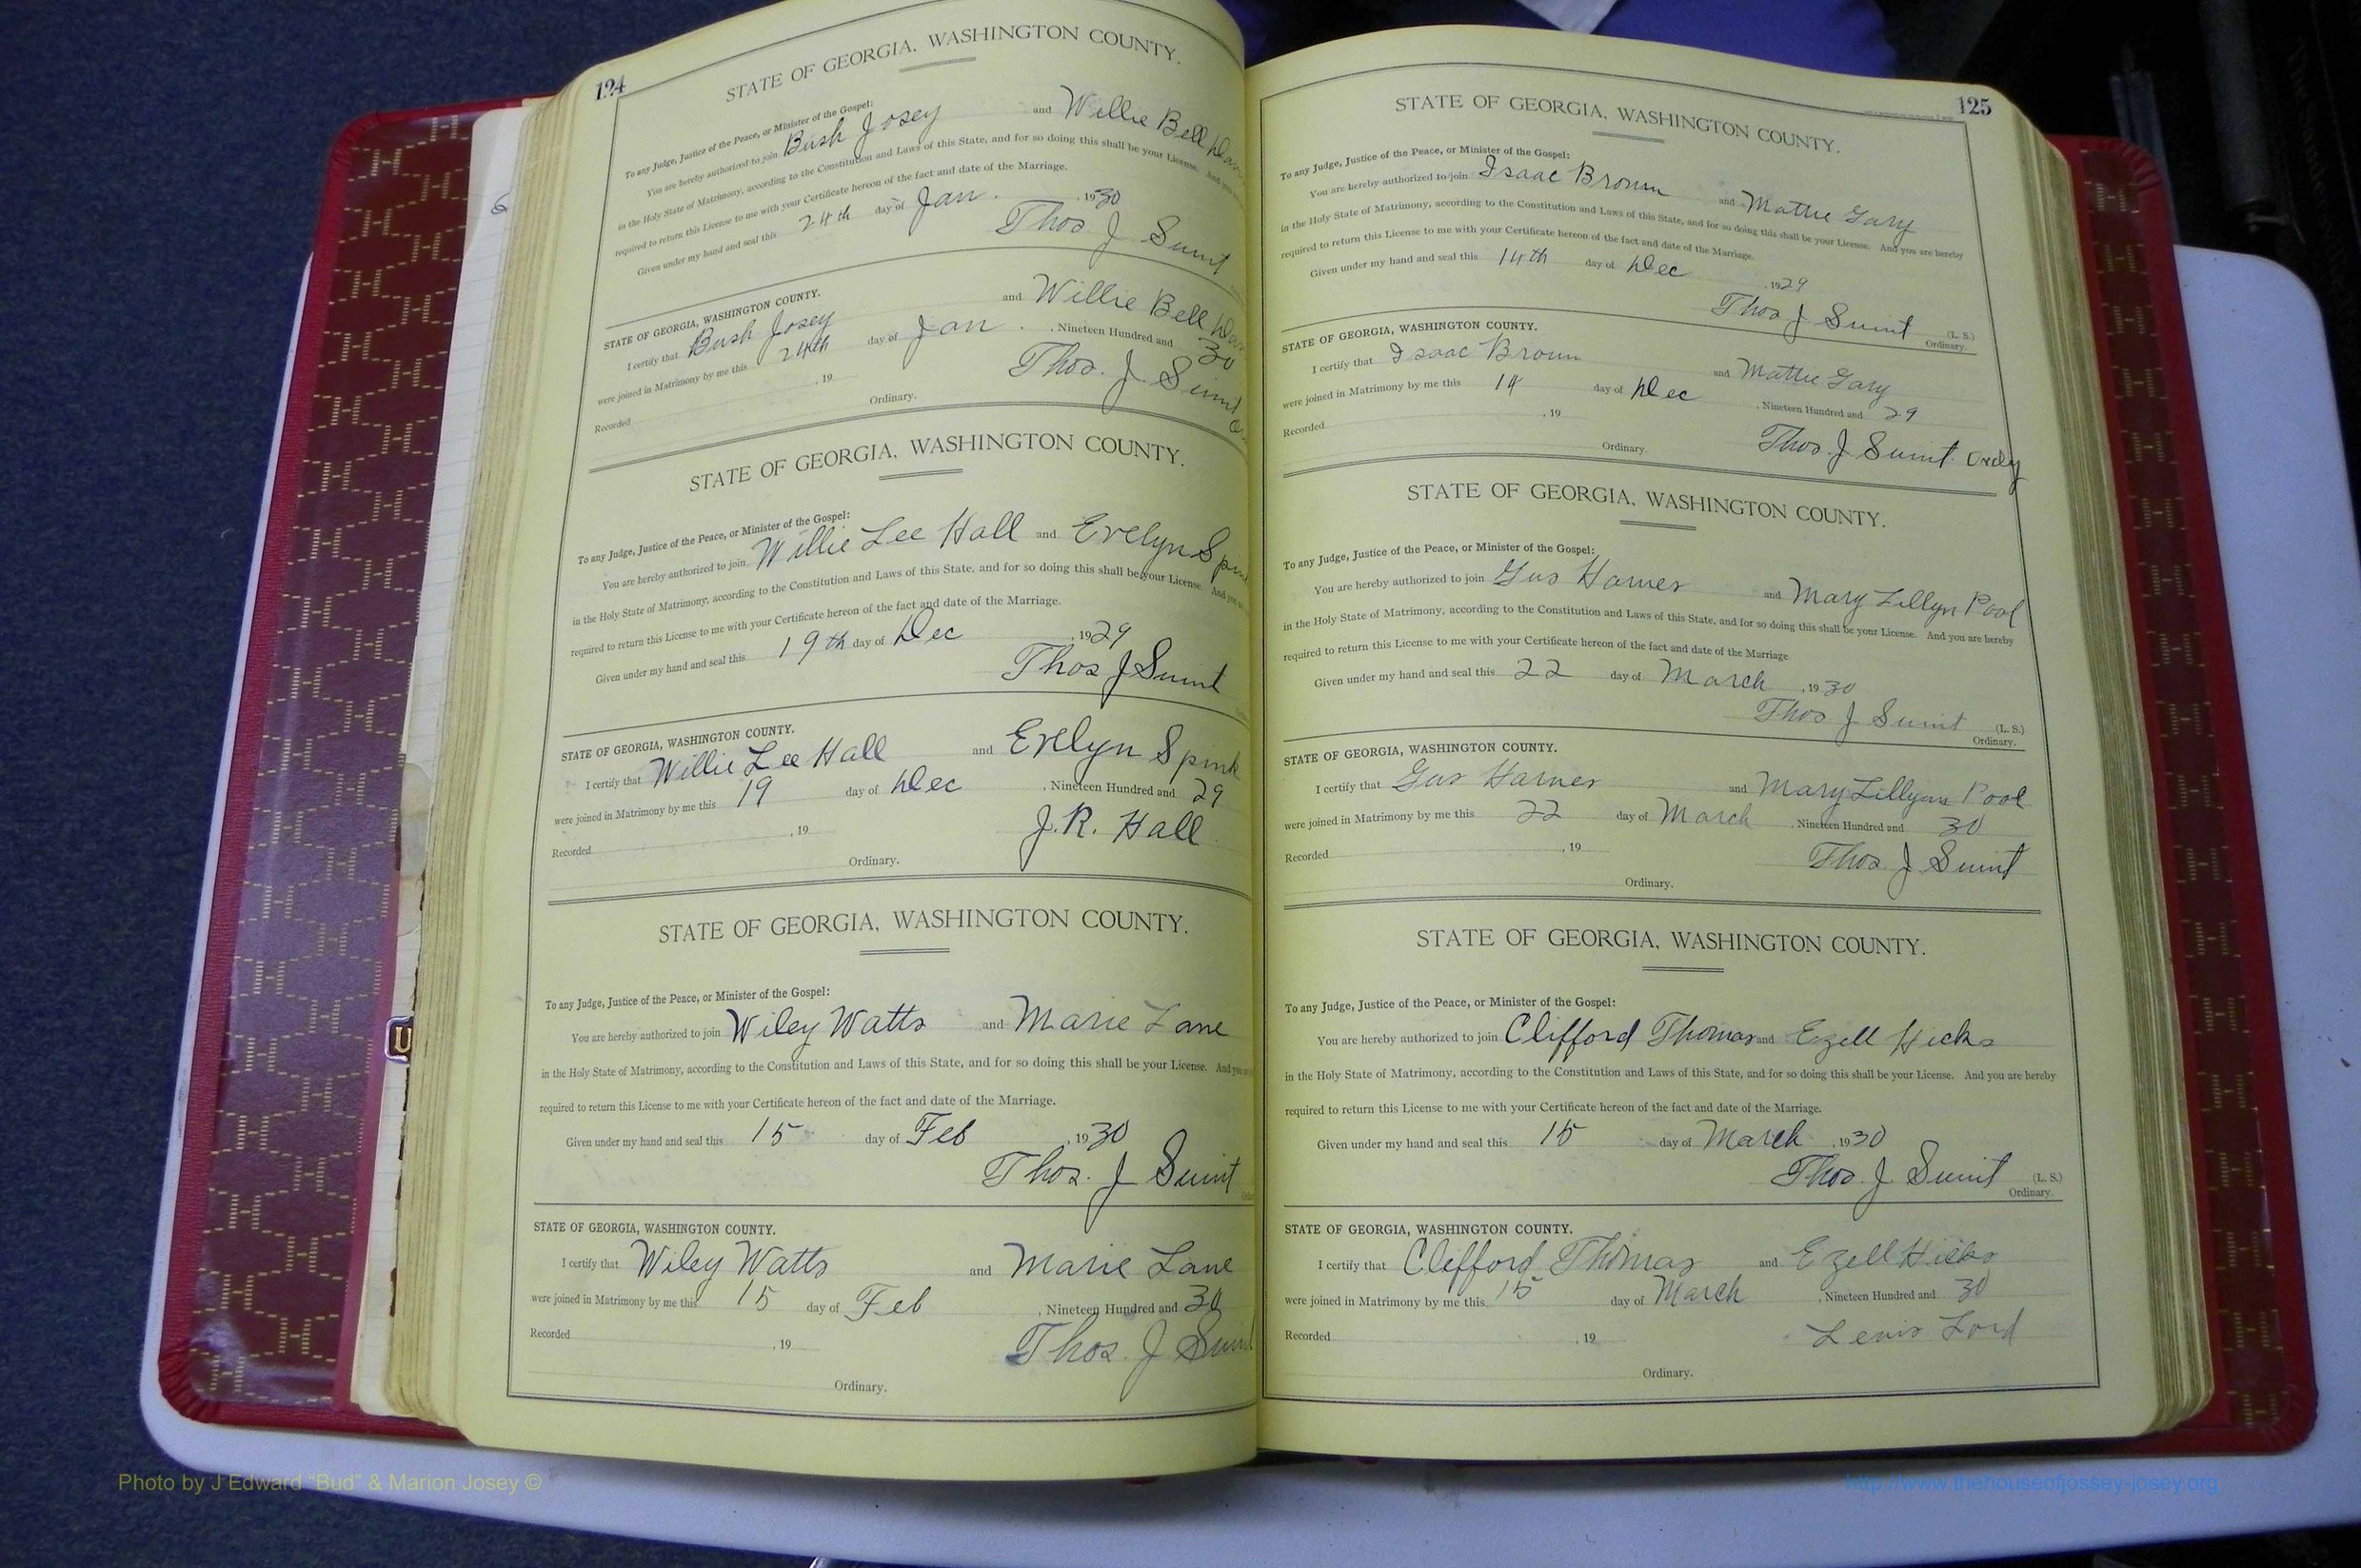 124
STATE OF GEORGIA, WASHINGTON COUNTY.
To any Judge, Justice of the Peace, or Minister of the Gospel:
You are hereby authorized to join Bush Josey and Willie Bell
in the Holy State of Matrimony, according to the Constitution and Laws of this State, and for so doing this shall be your License. And you
required to return this License to me with your Certificate hereon of the fact and date of the Marriage.
Given under my hand and seal this 24th day of Jan. , 1930
Thos J Swint
STATE OF GEORGIA, WASHINGTON COUNTY.
I certify that Bush Josey and Willie Bell
were joined in Matrimony by me this 24th day of Jan. , Nineteen Hundred and 30
Recorded , 19 Thos. J. Swint
Ordinary.
STATE OF GEORGIA, WASHINGTON COUNTY.
To any Judge, Justice of the Peace, or Minister of the Gospel:
You are hereby authorized to join Willie Lee Hall and Evelyn
in the Holy State of Matrimony, according to the Constitution and Laws of this State, and for so doing this shall be your License. And you
required to return this License to me with your Certificate hereon of the fact and date of the Marriage.
Given under my hand and seal this 19th day of Dec , 1929
Thos J Swint
STATE OF GEORGIA, WASHINGTON COUNTY.
I certify that Willie Lee Hall and Evelyn Spink
were joined in Matrimony by me this 19 day of Dec , Nineteen Hundred and 29
Recorded , 19 J. R. Hall
Ordinary.
STATE OF GEORGIA, WASHINGTON COUNTY.
To any Judge, Justice of the Peace, or Minister of the Gospel:
You are hereby authorized to join Wiley Watts and Marie Lane
in the Holy State of Matrimony, according to the Constitution and Laws of this State, and for so doing this shall be your License. And you
required to return this License to me with your Certificate hereon of the fact and date of the Marriage.
Given under my hand and seal this 15 day of Feb , 1930
Thos. J Swint
STATE OF GEORGIA, WASHINGTON COUNTY.
I certify that Wiley Watts and Marie Lane
were joined in Matrimony by me this 15 day of Feb , Nineteen Hundred and 30
Recorded , 19 Thos. J Swint
Ordinary.
125
STATE OF GEORGIA, WASHINGTON COUNTY.
To any Judge, Justice of the Peace, or Minister of the Gospel:
You are hereby authorized to join Isaac Brown and Mattie Gary
in the Holy State of Matrimony, according to the Constitution and Laws of this State, and for so doing this shall be your License. And you are hereby
required to return this License to me with your Certificate hereon of the fact and date of the Marriage.
Given under my hand and seal this 14th day of Dec , 1929
Thos J Swint (L. S.)
Ordinary.
STATE OF GEORGIA, WASHINGTON COUNTY.
I certify that Isaac Brown and Mattie Gary
were joined in Matrimony by me this 14 day of Dec , Nineteen Hundred and 29
Recorded , 19 Thos. J Swint Ordy
Ordinary.
STATE OF GEORGIA, WASHINGTON COUNTY.
To any Judge, Justice of the Peace, or Minister of the Gospel:
You are hereby authorized to join Gus Harner and Mary Lillyn Pool
in the Holy State of Matrimony, according to the Constitution and Laws of this State, and for so doing this shall be your License. And you are hereby
required to return this License to me with your Certificate hereon of the fact and date of the Marriage
Given under my hand and seal this 22 day of March , 1930
Thos J Swint (L. S.)
Ordinary.
STATE OF GEORGIA, WASHINGTON COUNTY.
I certify that Gus Harner and Mary Lillyan Pool
were joined in Matrimony by me this 22 day of March , Nineteen Hundred and 30
Recorded , 19 Thos. J Swint
Ordinary.
STATE OF GEORGIA, WASHINGTON COUNTY.
To any Judge, Justice of the Peace, or Minister of the Gospel:
You are hereby authorized to join Clifford Thomas and Ezell Hicks
in the Holy State of Matrimony, according to the Constitution and Laws of this State, and for so doing this shall be your License. And you are hereby
required to return this License to me with your Certificate hereon of the fact and date of the Marriage.
Given under my hand and seal this 15 day of March , 1930
Thos. J Swint (L. S.)
Ordinary.
STATE OF GEORGIA, WASHINGTON COUNTY.
I certify that Clifford Thomas and Ezell Hicks
were joined in Matrimony by me this 15 day of March , Nineteen Hundred and 30
Recorded , 19 Lewis Lord
Ordinary.
Photo by J Edward "Bud" & Marion Josey ©
http://www.thehouseofjossey-josey.org